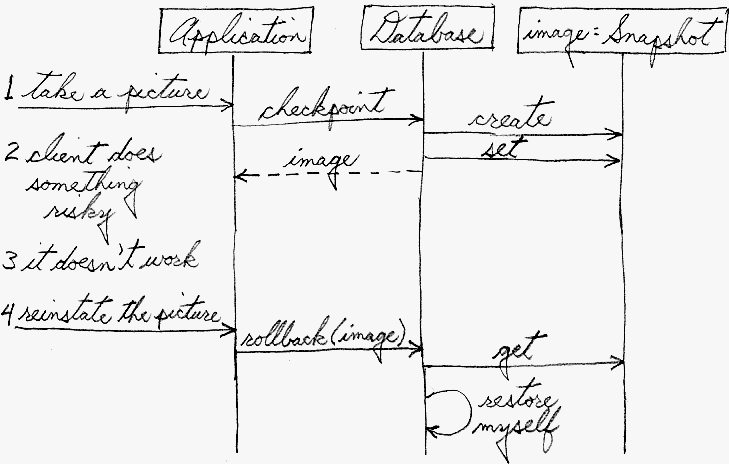 Application
Database
image: Snapshot
1 take a picture
checkpoint
create
set
2 client does
something
risky
image
3 it doesn't work
4 reinstate the picture
rollback(image)
get
restore
myself